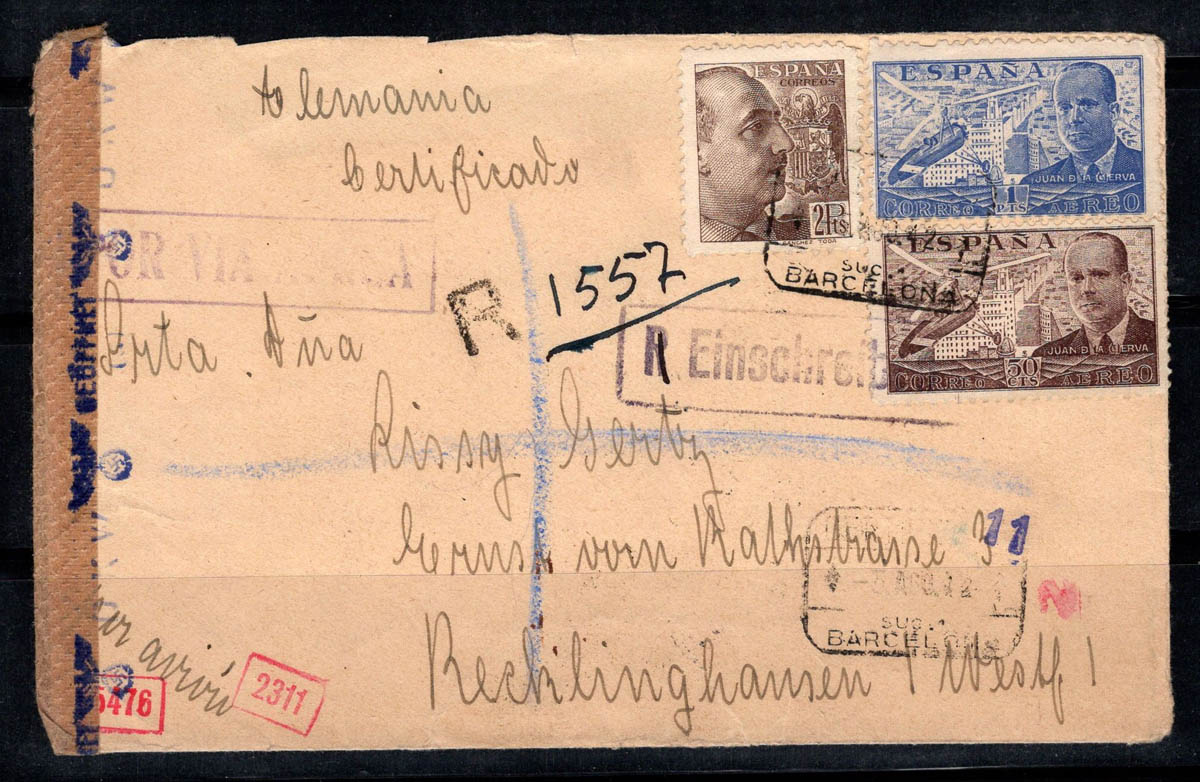 Alemania
Certificado
ESPAÑA
CORREOS
2 Pts
SANCHEZ TODA
ESPAÑA
JUAN DE LA CIERVA
1 PTS
CORREO AEREO
ESPAÑA
JUAN DE LA CIERVA
50 CTS
CORREO AEREO
SUC.
BARCELONA
POR Via
R 1557
R Einschreib
Srta. Dña
Lissy Gertz
Ernst vom Rathstrasse 3
11
Recklinghausen / Westf /
SUC. 1
BARCELONA
GEÖFFNET
por avión
5476
2311